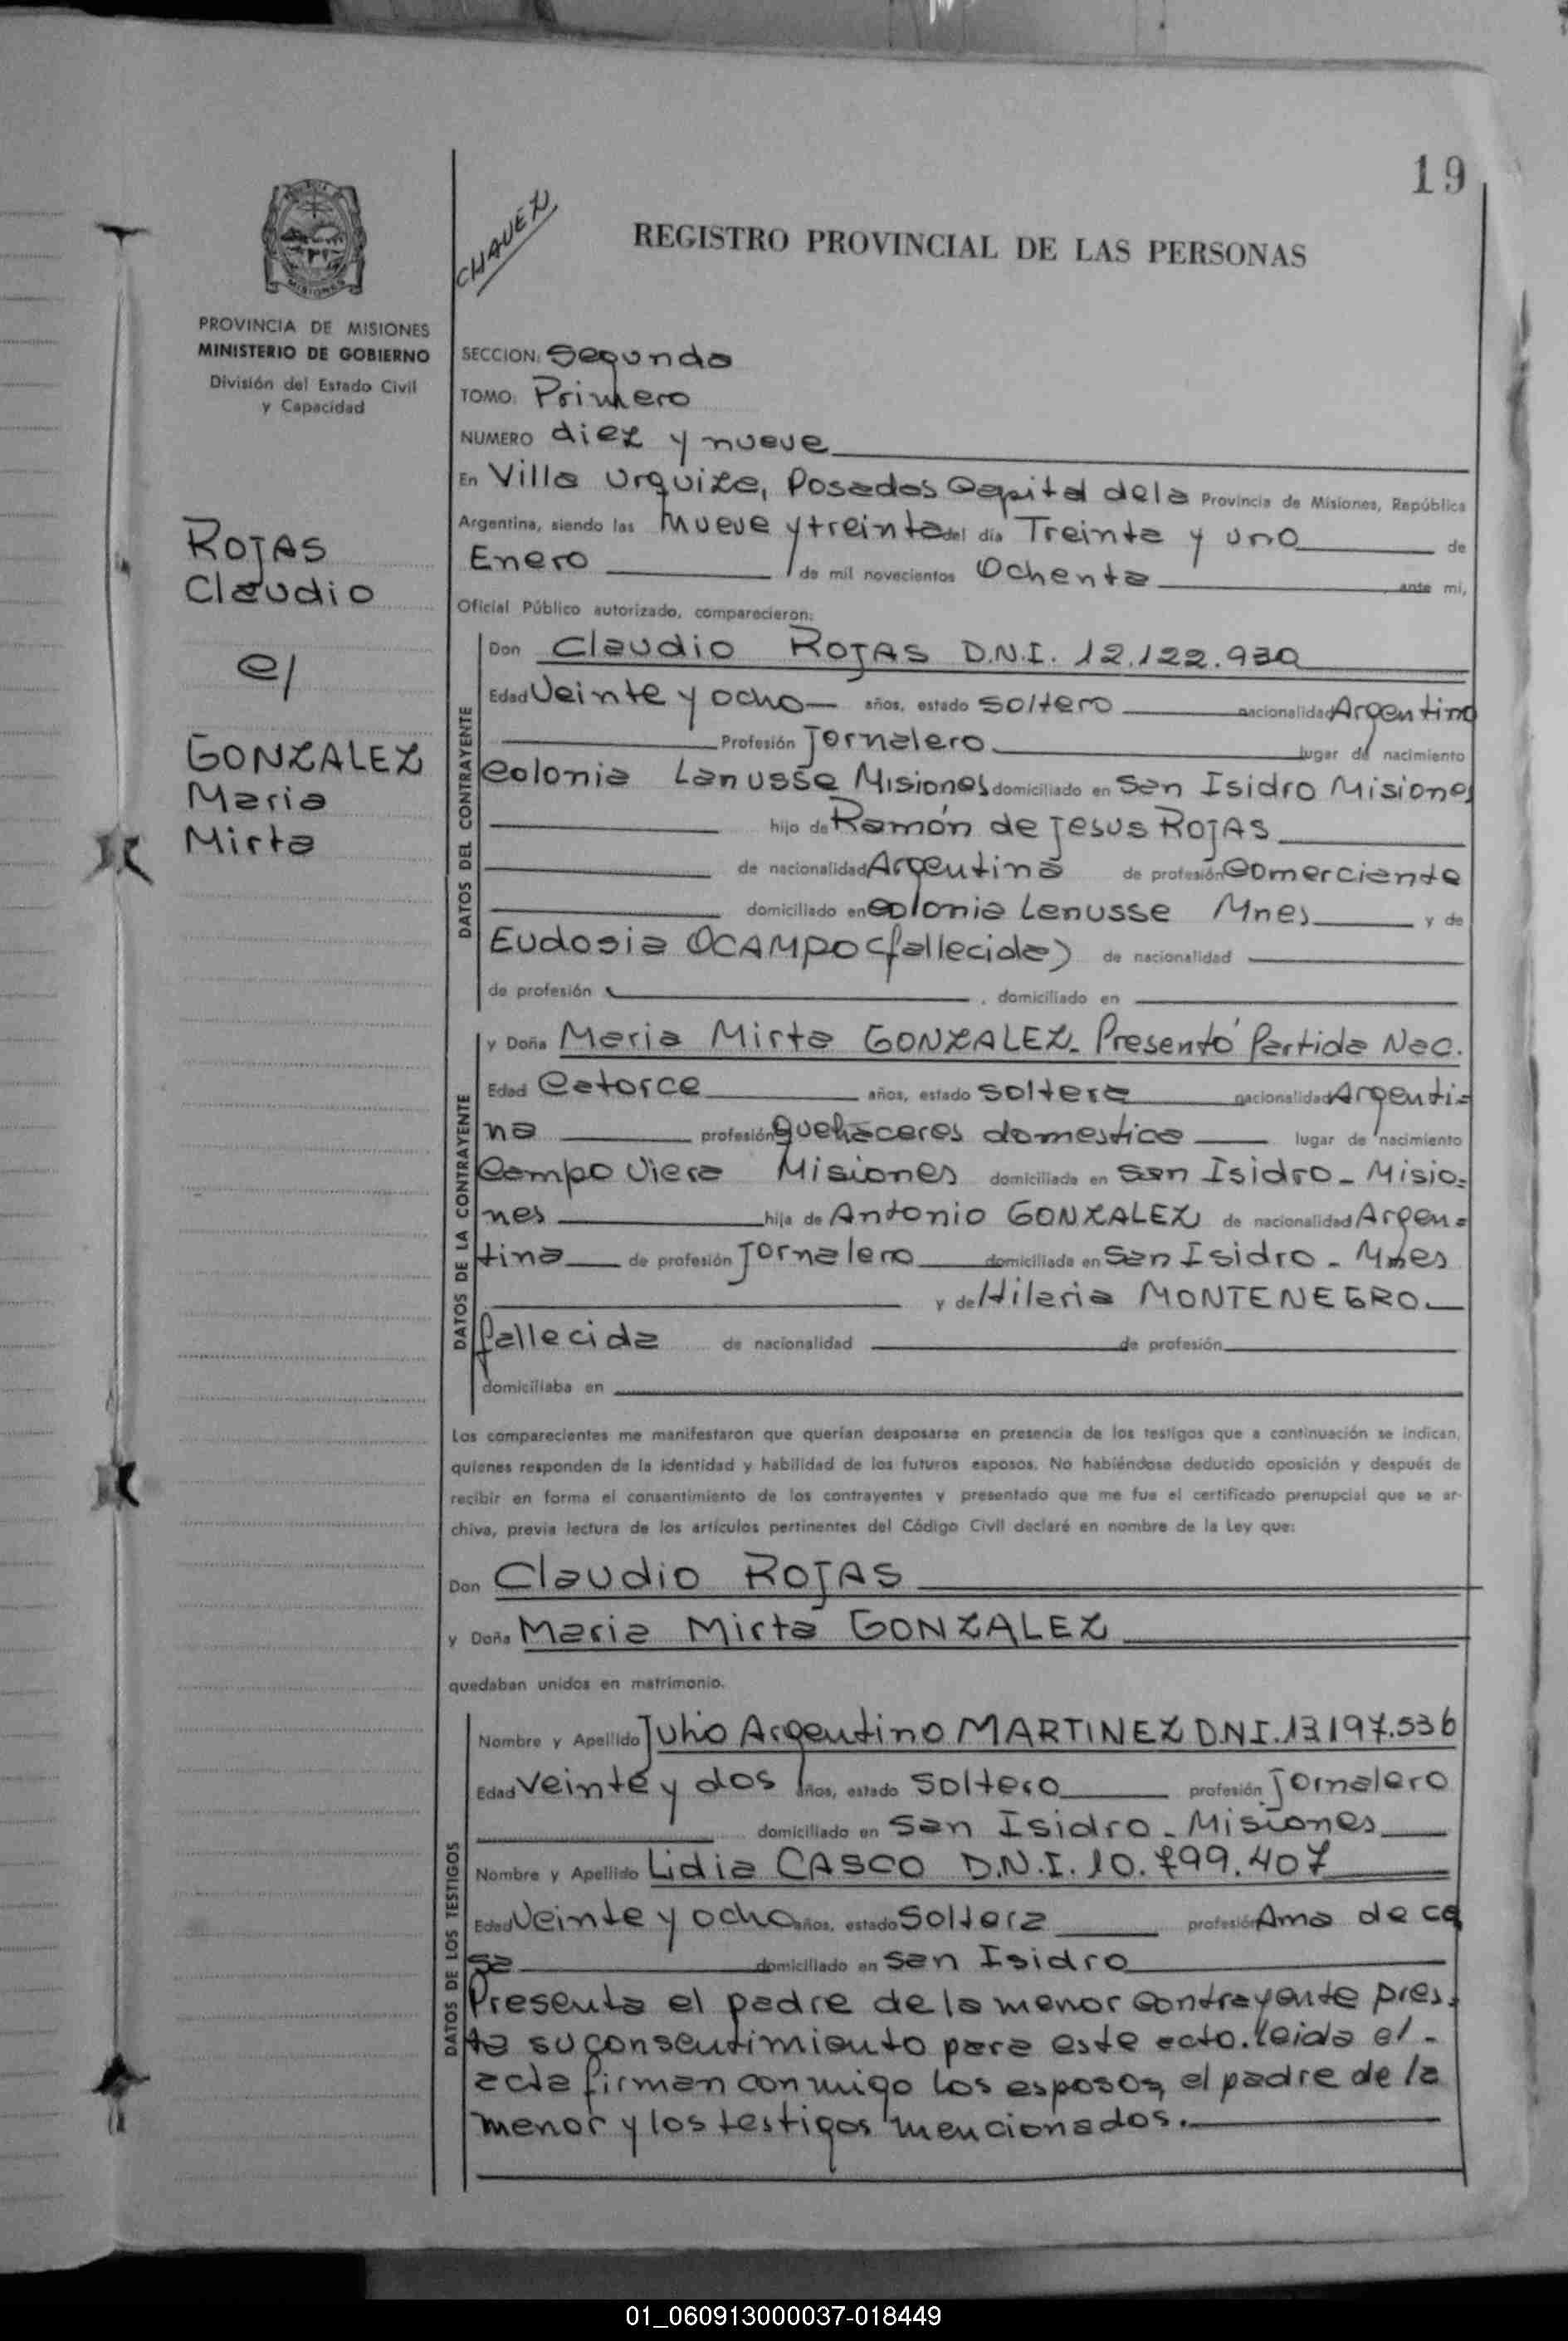 19
CHAVEZ
REGISTRO PROVINCIAL DE LAS PERSONAS
MISIONES
PROVINCIA DE MISIONES
MINISTERIO DE GOBIERNO
División del Estado Civil
y Capacidad
ROJAS
Claudio
c/
GONZALEZ
Maria
Mirta
SECCION: Segunda
TOMO: Primero
NUMERO diez y nueve
En Villa Urquiza, Posadas Capital de la Provincia de Misiones, República
Argentina, siendo las nueve y treinta del día Treinta y uno de
Enero de mil novecientos Ochenta ante mi,
Oficial Público autorizado, comparecieron:
DATOS DEL CONTRAYENTE
Don Claudio ROJAS D.N.I. 12.122.930
Edad Veinte y ocho años, estado soltero nacionalidad Argentino
Profesión Jornalero lugar de nacimiento
Colonia Lanusse Misiones domiciliado en San Isidro Misiones
hijo de Ramón de Jesus ROJAS
de nacionalidad Argentina de profesión Comerciante
domiciliado en Colonia Lanusse Mnes y de
Eudosia OCAMPO (fallecida) de nacionalidad
de profesión , domiciliado en
DATOS DE LA CONTRAYENTE
y Doña Maria Mirta GONZALEZ. Presentó Partida Nac.
Edad Catorce años, estado soltera nacionalidad Argenti=
na profesión quehaceres domestico lugar de nacimiento
Campo Viera Misiones domiciliada en San Isidro - Misio=
nes hija de Antonio GONZALEZ de nacionalidad Argen=
tina de profesión Jornalero domiciliado en San Isidro - Mnes
y de Hilaria MONTENEGRO
fallecida de nacionalidad de profesión
domiciliaba en
Los comparecientes me manifestaron que querían desposarse en presencia de los testigos que a continuación se indican,
quienes responden de la identidad y habilidad de los futuros esposos. No habiéndose deducido oposición y después de
recibir en forma el consentimiento de los contrayentes y presentado que me fue el certificado prenupcial que se ar-
chiva, previa lectura de los artículos pertinentes del Código Civil declaré en nombre de la Ley que:
Don Claudio ROJAS
y Doña Maria Mirta GONZALEZ
quedaban unidos en matrimonio.
DATOS DE LOS TESTIGOS
Nombre y Apellido Julio Argentino MARTINEZ DNI. 13197.536
Edad Veinte y dos años, estado soltero profesión Jornalero
domiciliado en San Isidro - Misiones
Nombre y Apellido Lidia CASCO D.N.I. 10.799.407
Edad Veinte y ocho años, estado soltera profesión Ama de ca
sa domiciliado en San Isidro
Presenta el padre de la menor contrayente pres-
ta su consentimiento para este acto. leida el -
acta firman conmigo los esposos, el padre de la
menor y los testigos mencionados.
01_060913000037-018449